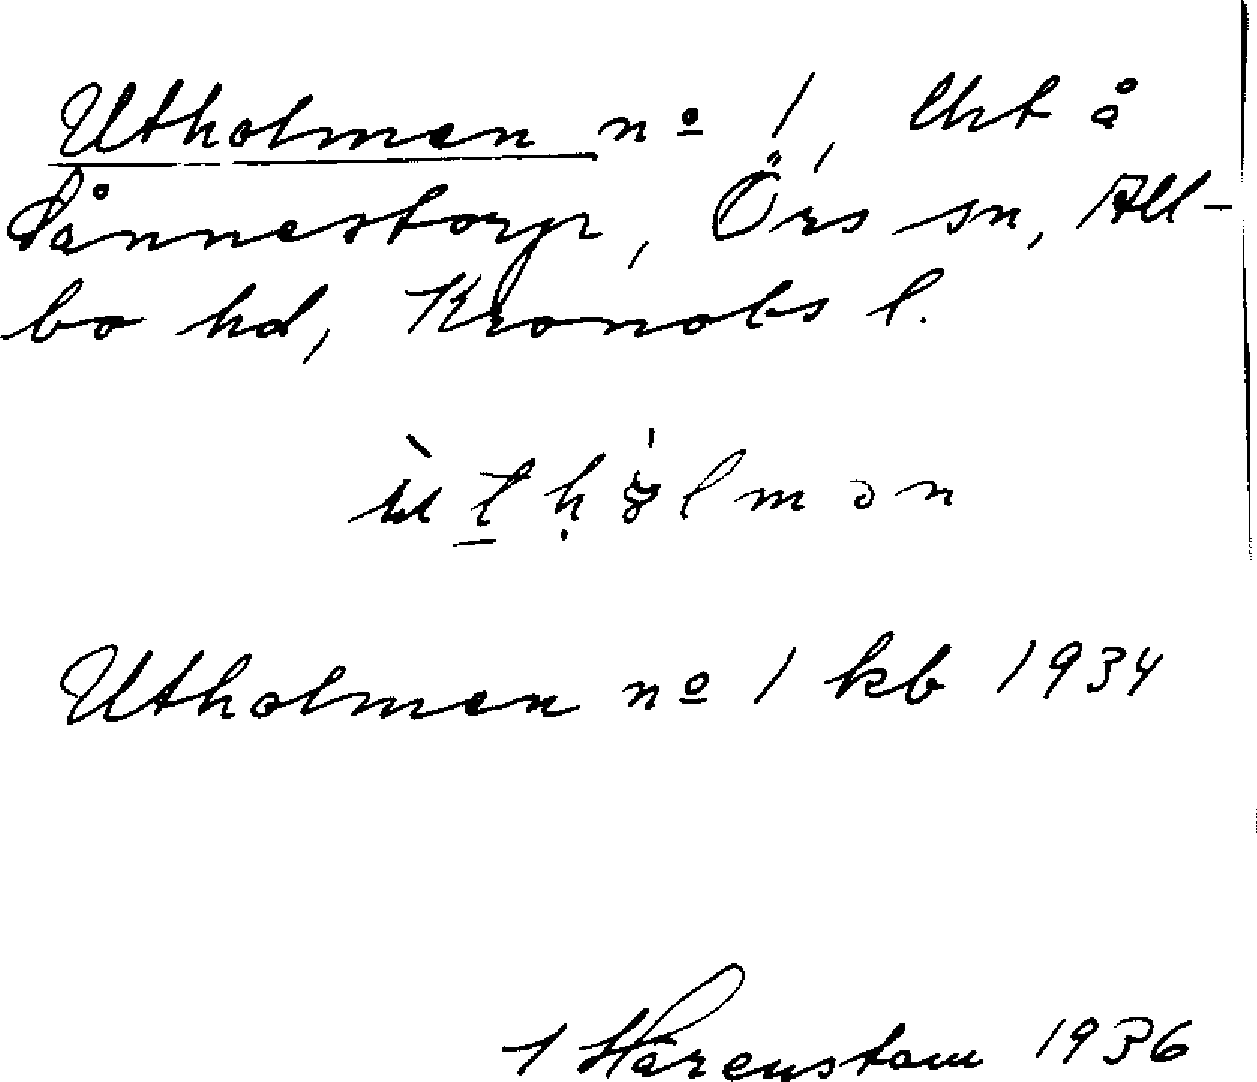 Utholmen nº 1, Uht å
Sånnestorp, Örs sn, All-
bo hd, Kronobs l.
Utholmen nº 1 kb 1934
Härenstam 1936